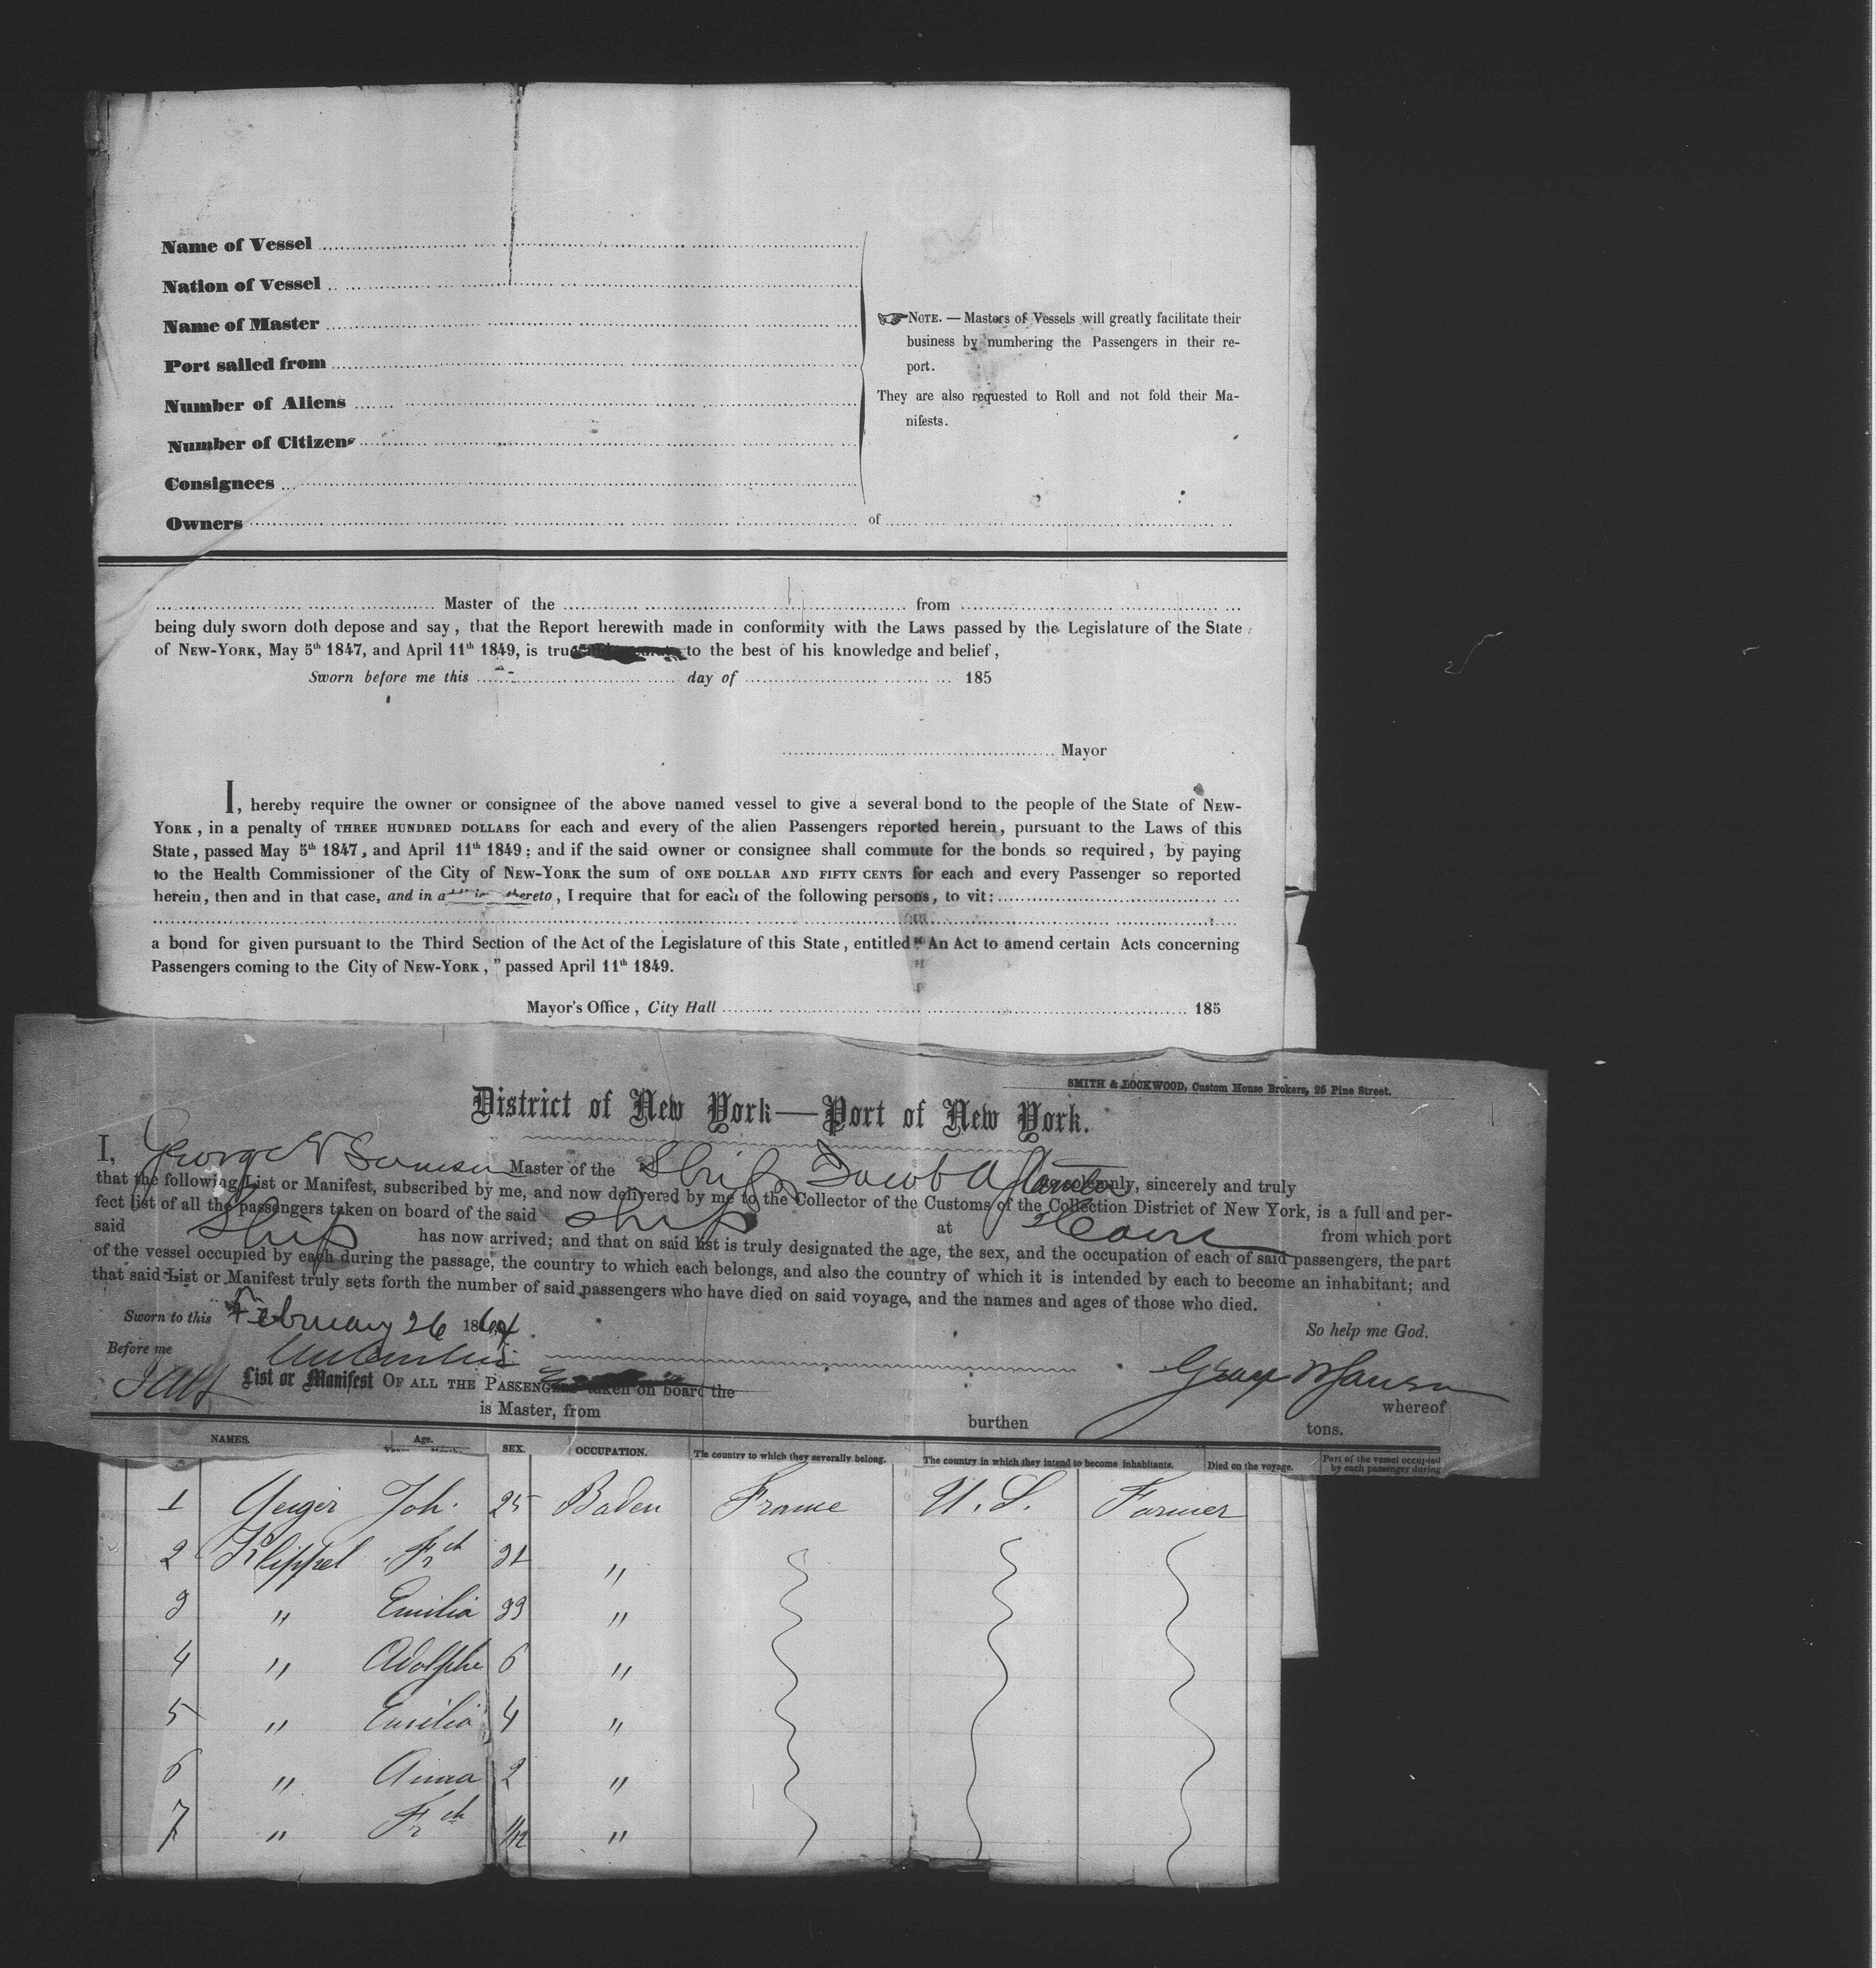 Name of Vessel
Nation of Vessel
Name of Master
Port sailed from
Number of Aliens
Number of Citizens
Consignees
Owners of
NOTE. — Masters of Vessels will greatly facilitate their
business by numbering the Passengers in their re-
port.
They are also requested to Roll and not fold their Ma-
nifests.
Master of the from
being duly sworn doth depose and say, that the Report herewith made in conformity with the Laws passed by the Legislature of the State
of NEW-YORK, May 5th 1847, and April 11th 1849, is true to the best of his knowledge and belief,
Sworn before me this day of 185
Mayor
I, hereby require the owner or consignee of the above named vessel to give a several bond to the people of the State of NEW-
YORK, in a penalty of THREE HUNDRED DOLLARS for each and every of the alien Passengers reported herein, pursuant to the Laws of this
State, passed May 5th 1847, and April 11th 1849: and if the said owner or consignee shall commute for the bonds so required, by paying
to the Health Commissioner of the City of NEW-YORK the sum of ONE DOLLAR AND FIFTY CENTS for each and every Passenger so reported
herein, then and in that case, and in addition thereto, I require that for each of the following persons, to vit:
a bond for given pursuant to the Third Section of the Act of the Legislature of this State, entitled "An Act to amend certain Acts concerning
Passengers coming to the City of NEW-YORK," passed April 11th 1849.
Mayor's Office, City Hall 185
SMITH & LOCKWOOD, Custom House Brokers, 25 Pine Street.
District of New York—Port of New York.
I, George W Master of the Ship Jacob A do solemnly, sincerely and truly
that the following List or Manifest, subscribed by me, and now delivered by me to the Collector of the Customs of the Collection District of New York, is a full and per-
fect list of all the passengers taken on board of the said Ship at from which port
said Ship has now arrived; and that on said list is truly designated the age, the sex, and the occupation of each of said passengers, the part
of the vessel occupied by each during the passage, the country to which each belongs, and also the country of which it is intended by each to become an inhabitant; and
that said List or Manifest truly sets forth the number of said passengers who have died on said voyage, and the names and ages of those who died.
Sworn to this February 26 1864 So help me God.
Before me
List or Manifest OF ALL THE PASSENGERS taken on board the whereof
is Master, from burthen tons.
NAMES. Age. SEX. OCCUPATION. The country to which they severally belong. The country in which they intend to become inhabitants. Died on the voyage. Part of the vessel occupied by each passenger during
1 Geiger Joh. 25 Baden France U.S. Farmer
2 Klippel Frch 31 "
3 " Emilia 39 "
4 " Adolphe 6 "
5 " Emilia 4 "
6 " Anna 2 "
7 " Frch "